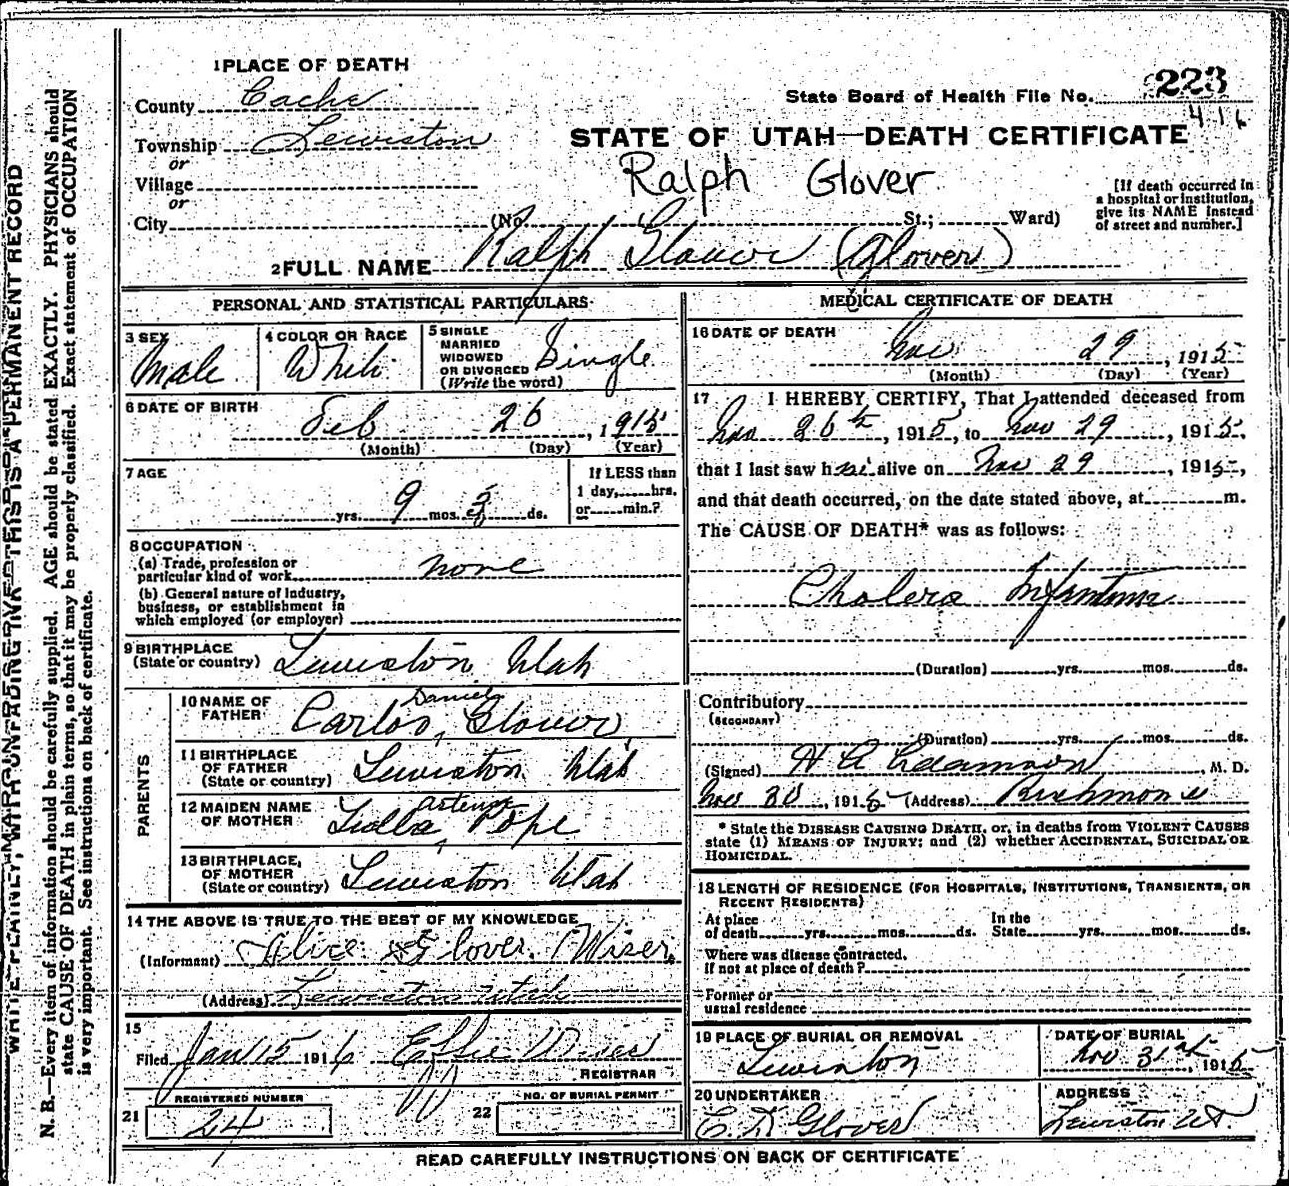 1 PLACE OF DEATH
County Cache
State Board of Health File No. 223
416
Township Lewiston
or
STATE OF UTAH—DEATH CERTIFICATE
Village
or
Ralph Glover
[If death occurred in
a hospital or institution,
give its NAME instead
of street and number.]
City (No. St.; Ward)
2 FULL NAME Ralph Glauvr (Glover)
PERSONAL AND STATISTICAL PARTICULARS
3 SEX
Male
4 COLOR OR RACE
White
5 SINGLE
MARRIED
WIDOWED
OR DIVORCED
(Write the word)
Single
6 DATE OF BIRTH
Feb 26, 1915
(Month) (Day) (Year)
7 AGE
yrs. 9 mos. 3 ds.
If LESS than
1 day, hrs.
or min.?
8 OCCUPATION
(a) Trade, profession or
particular kind of work none
(b) General nature of industry,
business, or establishment in
which employed (or employer)
9 BIRTHPLACE
(State or country) Lewiston Utah
PARENTS
10 NAME OF
FATHER Carlos Daniel Glover
11 BIRTHPLACE
OF FATHER
(State or country) Lewiston Utah
12 MAIDEN NAME
OF MOTHER Pope
13 BIRTHPLACE
OF MOTHER
(State or country) Lewiston Utah
14 THE ABOVE IS TRUE TO THE BEST OF MY KNOWLEDGE
(Informant) Alice Glover Wiser
(Address) Lewiston Utah
15
Filed Jan 15 1916 Effie Wiser
REGISTRAR
REGISTERED NUMBER
21 24
NO. OF BURIAL PERMIT
22
MEDICAL CERTIFICATE OF DEATH
16 DATE OF DEATH
Nov 29, 1915
(Month) (Day) (Year)
17 I HEREBY CERTIFY, That I attended deceased from
Nov 26th, 1915, to Nov 29, 1915,
that I last saw h alive on Nov 29, 1915,
and that death occurred, on the date stated above, at m.
The CAUSE OF DEATH* was as follows:
Cholera Infantum
(Duration) yrs. mos. ds.
Contributory
(SECONDARY)
(Duration) yrs. mos. ds.
(Signed) H A, M. D.
Nov 30, 1915 (Address) Richmond
* State the DISEASE CAUSING DEATH, or, in deaths from VIOLENT CAUSES
state (1) MEANS OF INJURY; and (2) whether ACCIDENTAL, SUICIDAL OR
HOMICIDAL.
18 LENGTH OF RESIDENCE (FOR HOSPITALS, INSTITUTIONS, TRANSIENTS, OR
RECENT RESIDENTS)
At place
of death yrs. mos. ds.
In the
State yrs. mos. ds.
Where was disease contracted,
If not at place of death?
Former or
usual residence
19 PLACE OF BURIAL OR REMOVAL
Lewiston
DATE OF BURIAL
Nov 31st, 1915
20 UNDERTAKER
C D Glover
ADDRESS
Lewiston Ut.
READ CAREFULLY INSTRUCTIONS ON BACK OF CERTIFICATE
WRITE PLAINLY, WITH UNFADING INK—THIS IS A PERMANENT RECORD
N. B.—Every item of information should be carefully supplied. AGE should be stated EXACTLY. PHYSICIANS should
state CAUSE OF DEATH in plain terms, so that it may be properly classified. Exact statement of OCCUPATION
is very important. See instructions on back of certificate.